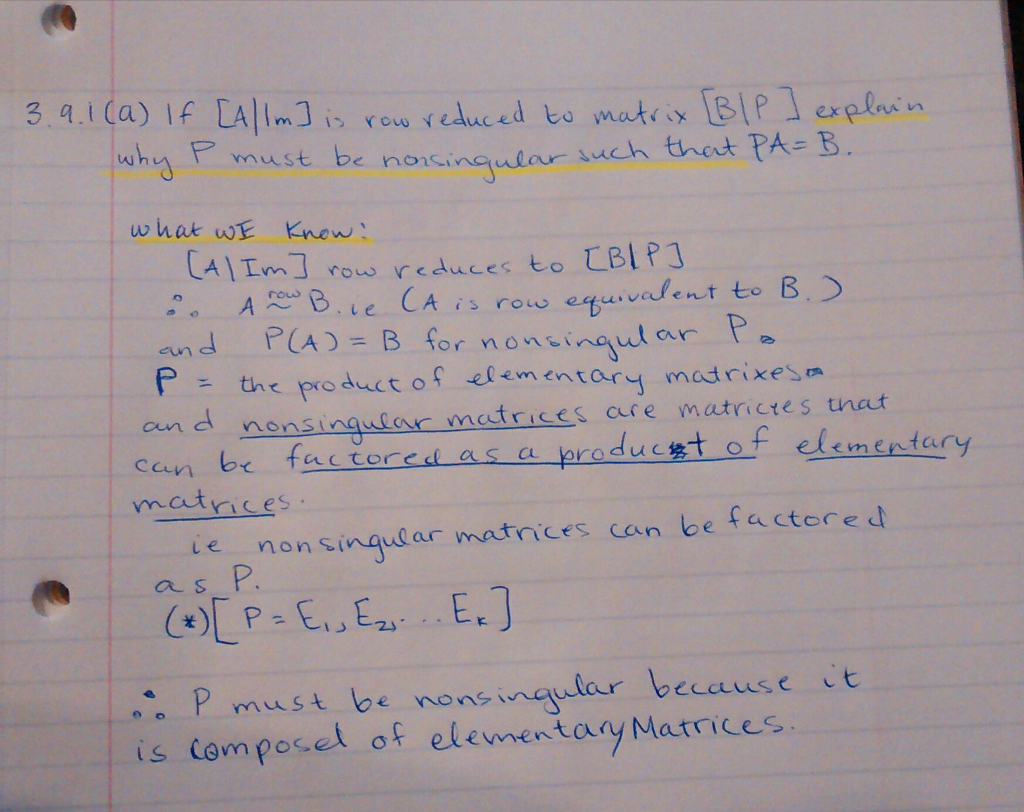 3.9.1(a) If [A|Im] is row reduced to matrix [B|P] explain
why P must be nonsingular such that PA=B.
what WE Know:
[A|Im] row reduces to [B|P]
∴ A row~ B. ie (A is row equivalent to B.)
and P(A) = B for nonsingular P.
P = the product of elementary matrixes.
and nonsingular matrices are matricies that
can be factored as a product of elementary
matrices.
ie nonsingular matrices can be factored
as P.
(*)[P = E1, E2, ... Ek]
∴ P must be nonsingular because it
is composed of elementary Matrices.